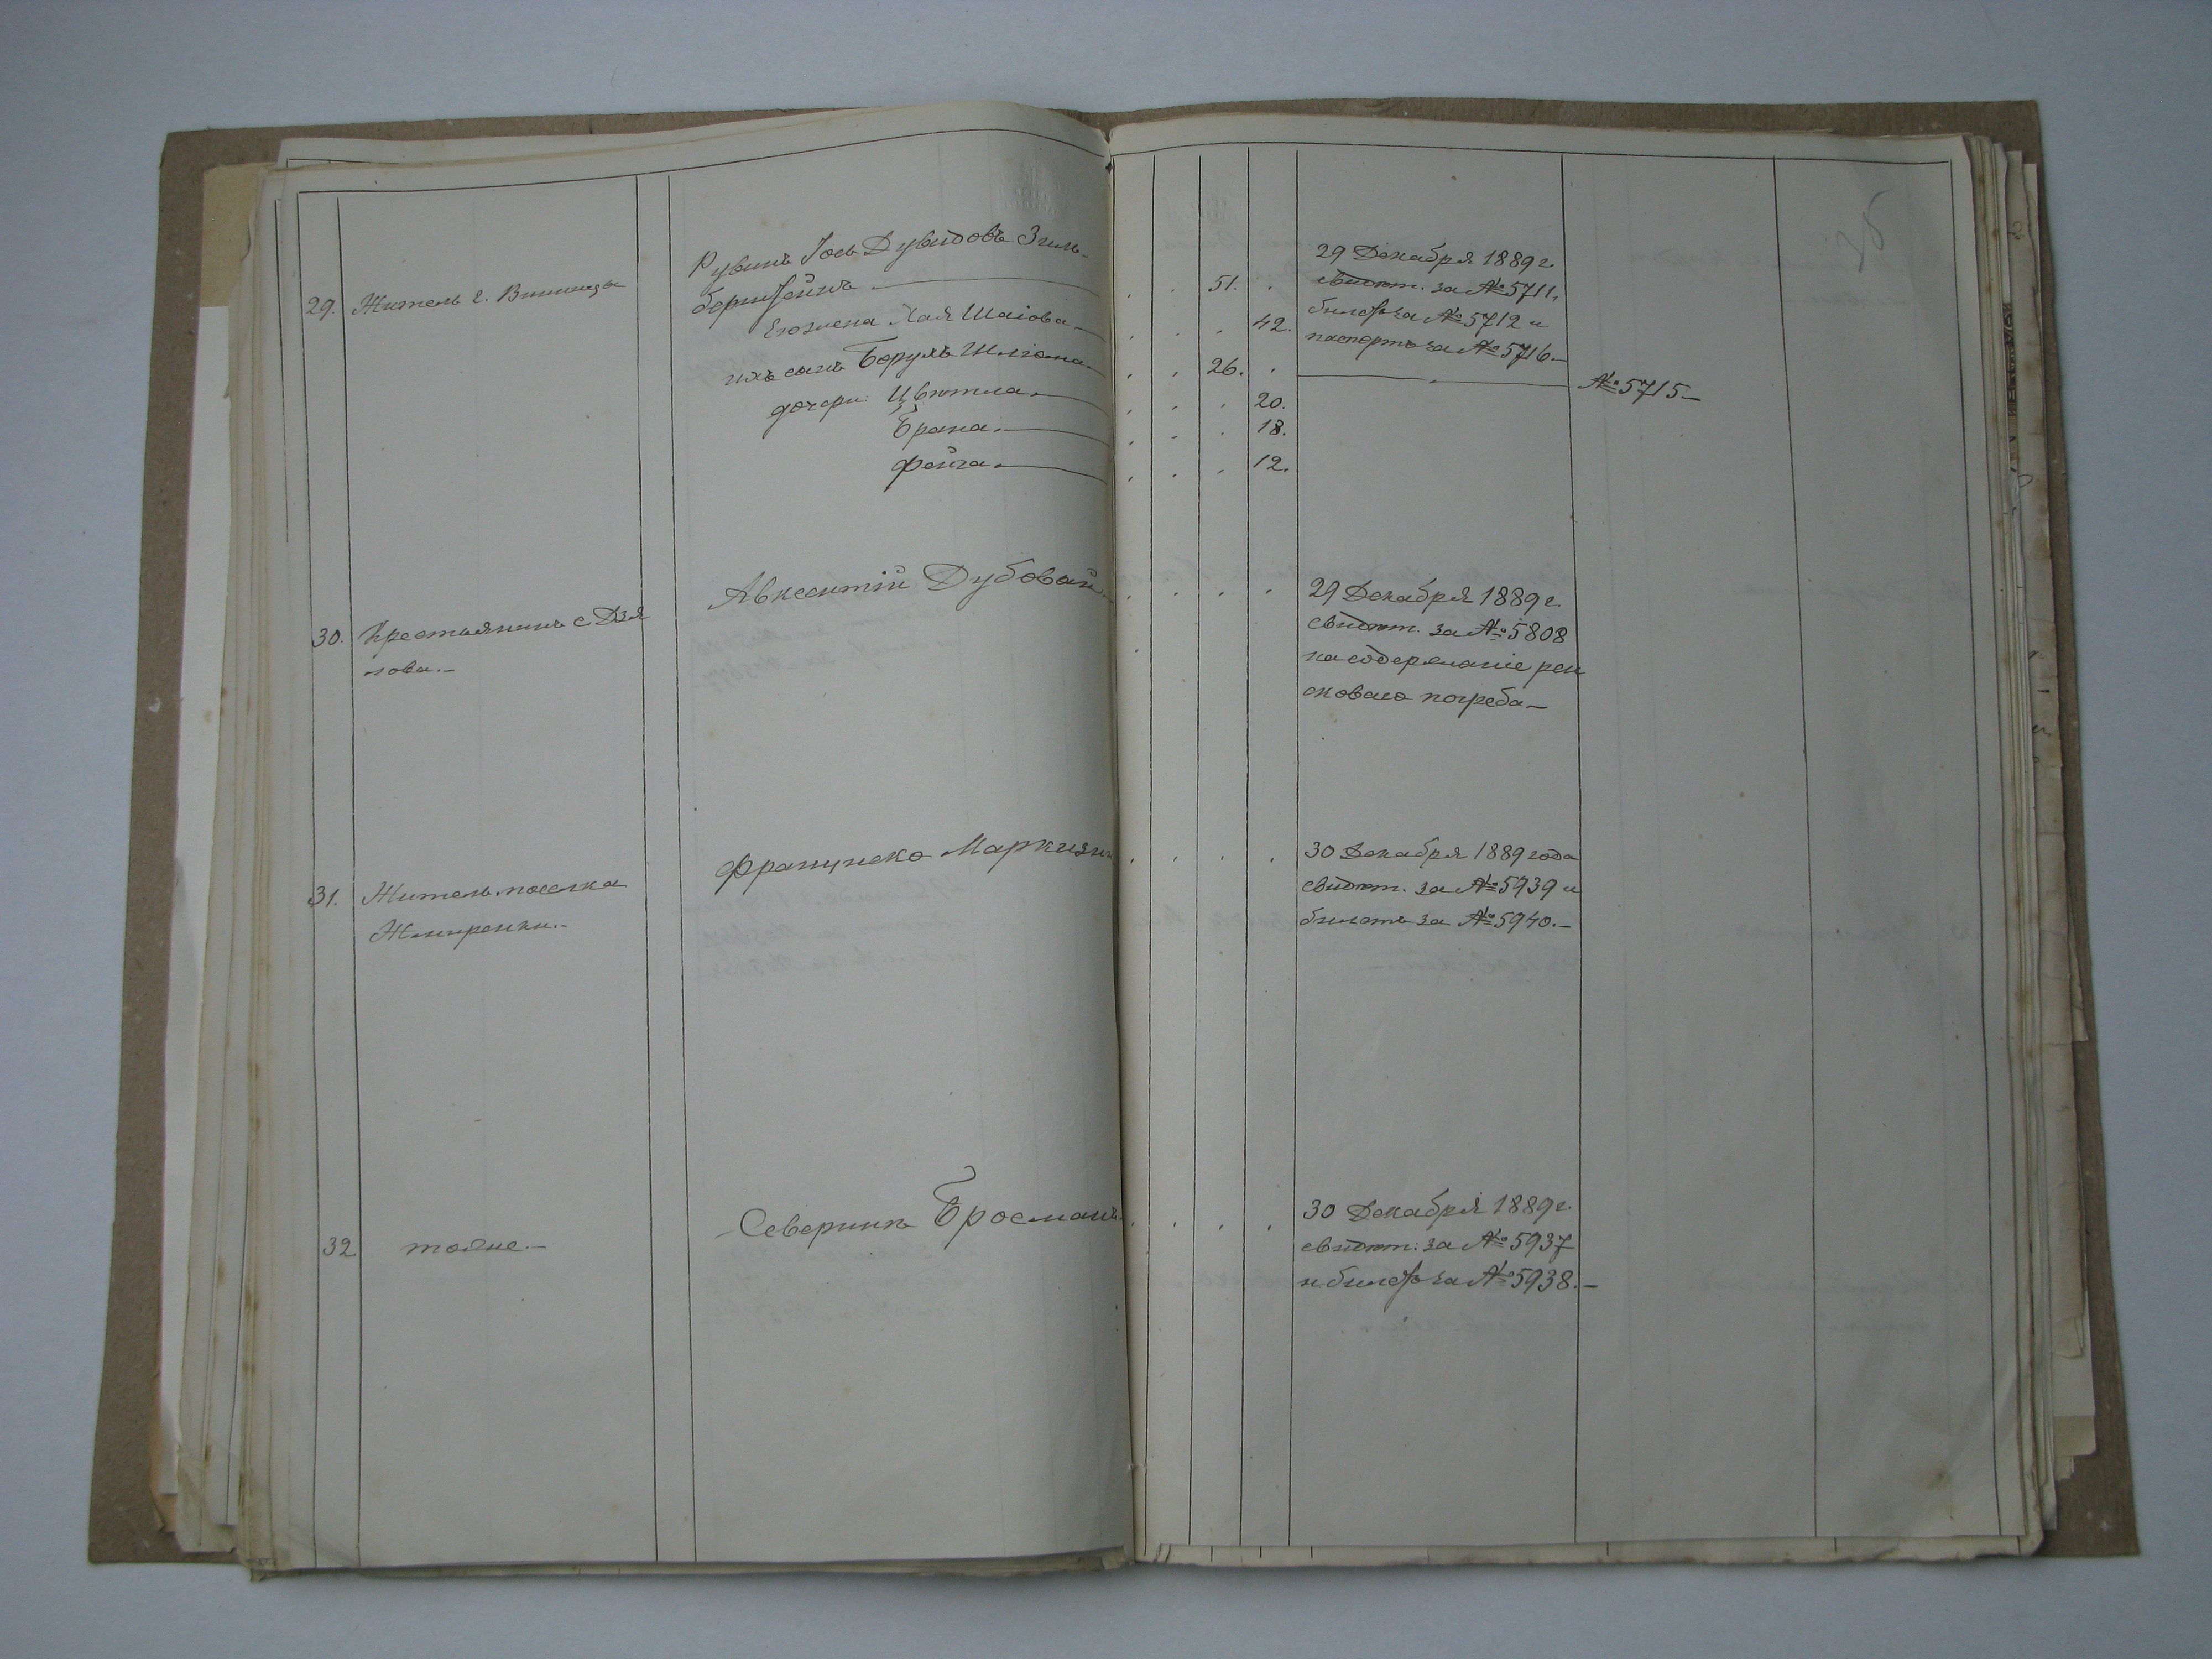 35
29. Житель г. Винницы
Рувинъ Іось Дувидовъ Зиль-
берштейнъ
Его жена Хая Шаіова
ихъ сынъ Борухъ Шліома
дочери: Цвютла
Брана.
Фейга.
51.
42.
26.
20.
18.
12.
29 Декабря 1889 г.
свидѣт. за № 5711,
билетъ за № 5712 и
паспортъ за № 5716.—
№ 5715—
30. Крестьянинъ с. Дзя
лова.—
Авксентій Дубовый
29 Декабря 1889 г.
свидѣт. за № 5808
на содержаніе рен
сковаго погреба—
31. Житель поселка
Жмеренки.—
Франциско Маркизи
30 Декабря 1889 года
свидѣт. за № 5939 и
билетъ за № 5940.—
32 тоже.—
Северинъ Бросманъ.
30 Декабря 1889 г.
свидѣт. за № 5937
и билетъ за № 5938.—